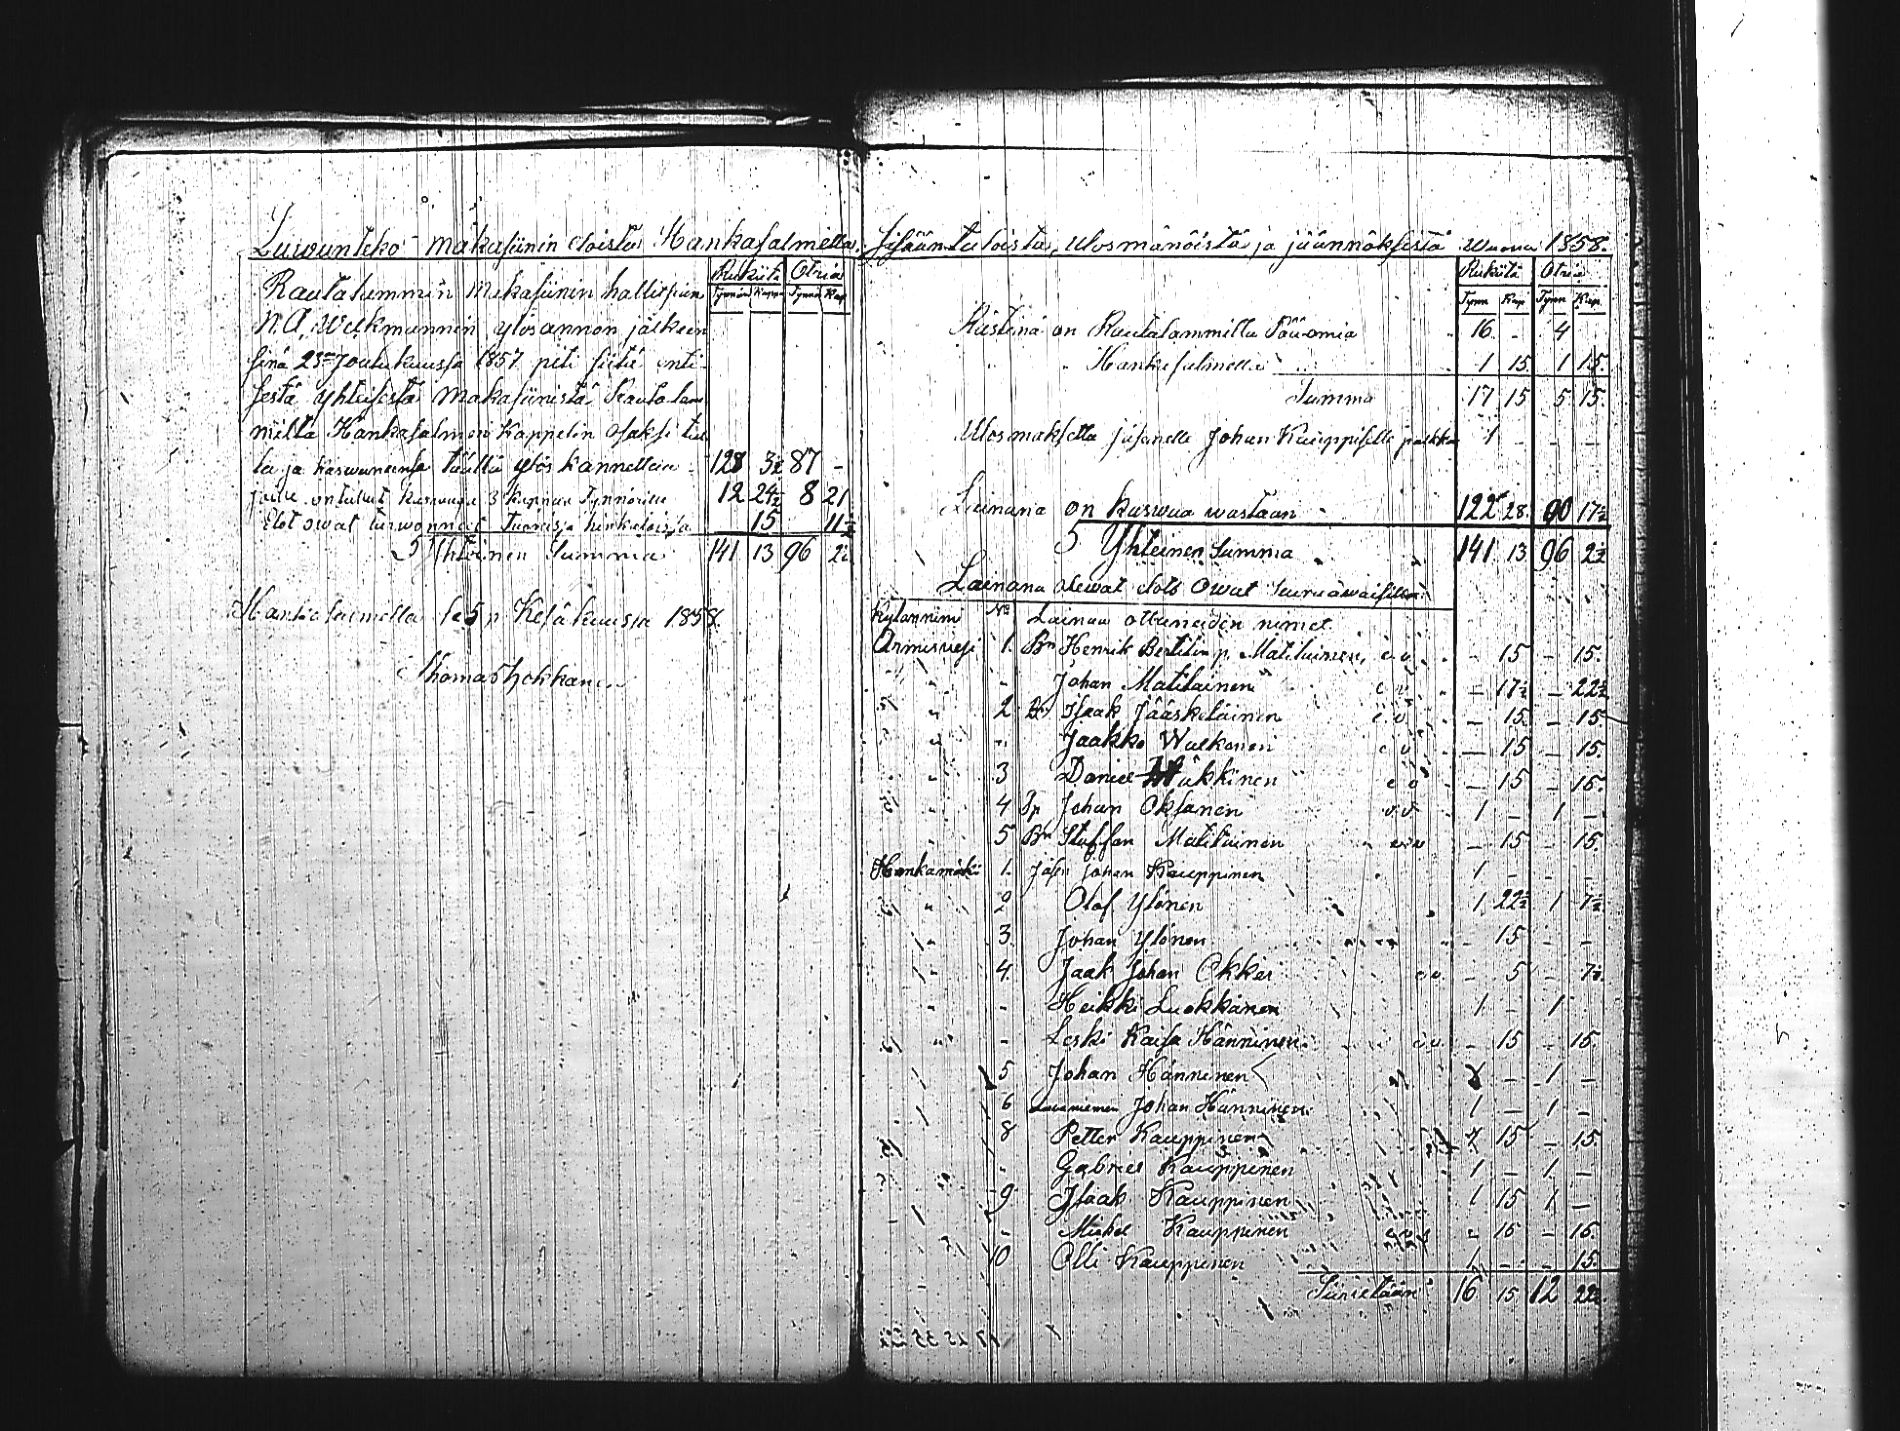 Luwunteko makasiinin eloista Hankasalmella. Sisään tuloista, ulosmänöistä ja jäännöksestä wuonna 1858.
Rukiita Otria
Tynnör Kappa Tynnör Kap
Rautalammin Makasiinin hallitsian
N. A. Wilkmannin ylösannon jälkeen
sinä 23= Joulukuussa 1857 piti siitä enti-
sestä yhteisestä Makasiinistä Rautalam
milta Hankasalmen Kappelin osaksi tul
la ja kaswuneensa täältä ylöskannettaa - 128 3½ 87 -
joille on tullut kaswuja 3 kappaa Tynnörille 12 24½ 8 21
Elot owat turwonnut Tuonisja hinkaloissa 15 11½
Yhteinen Summa 141 13 96 2½
Hankasalmella se 5 p Kesäkuussa 1858.
Thomas Hokkanen
Rukiita Otria
Tynn Kap Tynn Kap.
Rästinä on Rautalammilla Pääomia 16 - 4
" " Hankasalmella 1 15. 1 15.
Summa 17 15 5 15.
Ulosmaksettu Jäsenelle Johan Kauppiselle palkka 1 - - -
Lainana on kaswua wastaan 122 28. 90 17½
Yhteinen Summa 141 13 96 2½
Lainana olewat elot Owat seurawaisilla
Kylännimi No Lainan ottaneiden nimet.
Armiswesi 1. Bn Henrik Bertilin p. Matilainen, - 15 - 15.
- Johan Matilainen - 17½ - 22½
" 2 Bn Isaak Jääskeläinen - 15. - 15
" " Jaakko Walkonen - 15 - 15.
" 3 Daniel Häkkinen - 15 - 15.
" 4 Johan Oksanen 1 - 1 -
" 5 Bn Staffan Matilainen - 15 - 15.
Hankamäki 1. Jäsen Johan Kauppinen 1 - - -
" 2 Olof Ylönen 1 22½ 1 7½
3 Johan Ylönen - 15 - -
4 Jaak Johan Okker - 5 - 7½
- Heikki Luokkanen 1 - 1
- Leski Kaisa Hänninen - 15 - 15.
5 Johan Hänninen - 1 -
6 Johan Hänninen 1 - 1 -
8 Petter Kauppinen 15 - 15
- Gabriel Kauppinen 1 - 1 -
9 Isaak Kauppinen 1 15 1 -
- Michel Kauppinen - 15 - 15.
10 Olli Kauppinen 1 - - 15.
Siiretään 16 15 12 22½